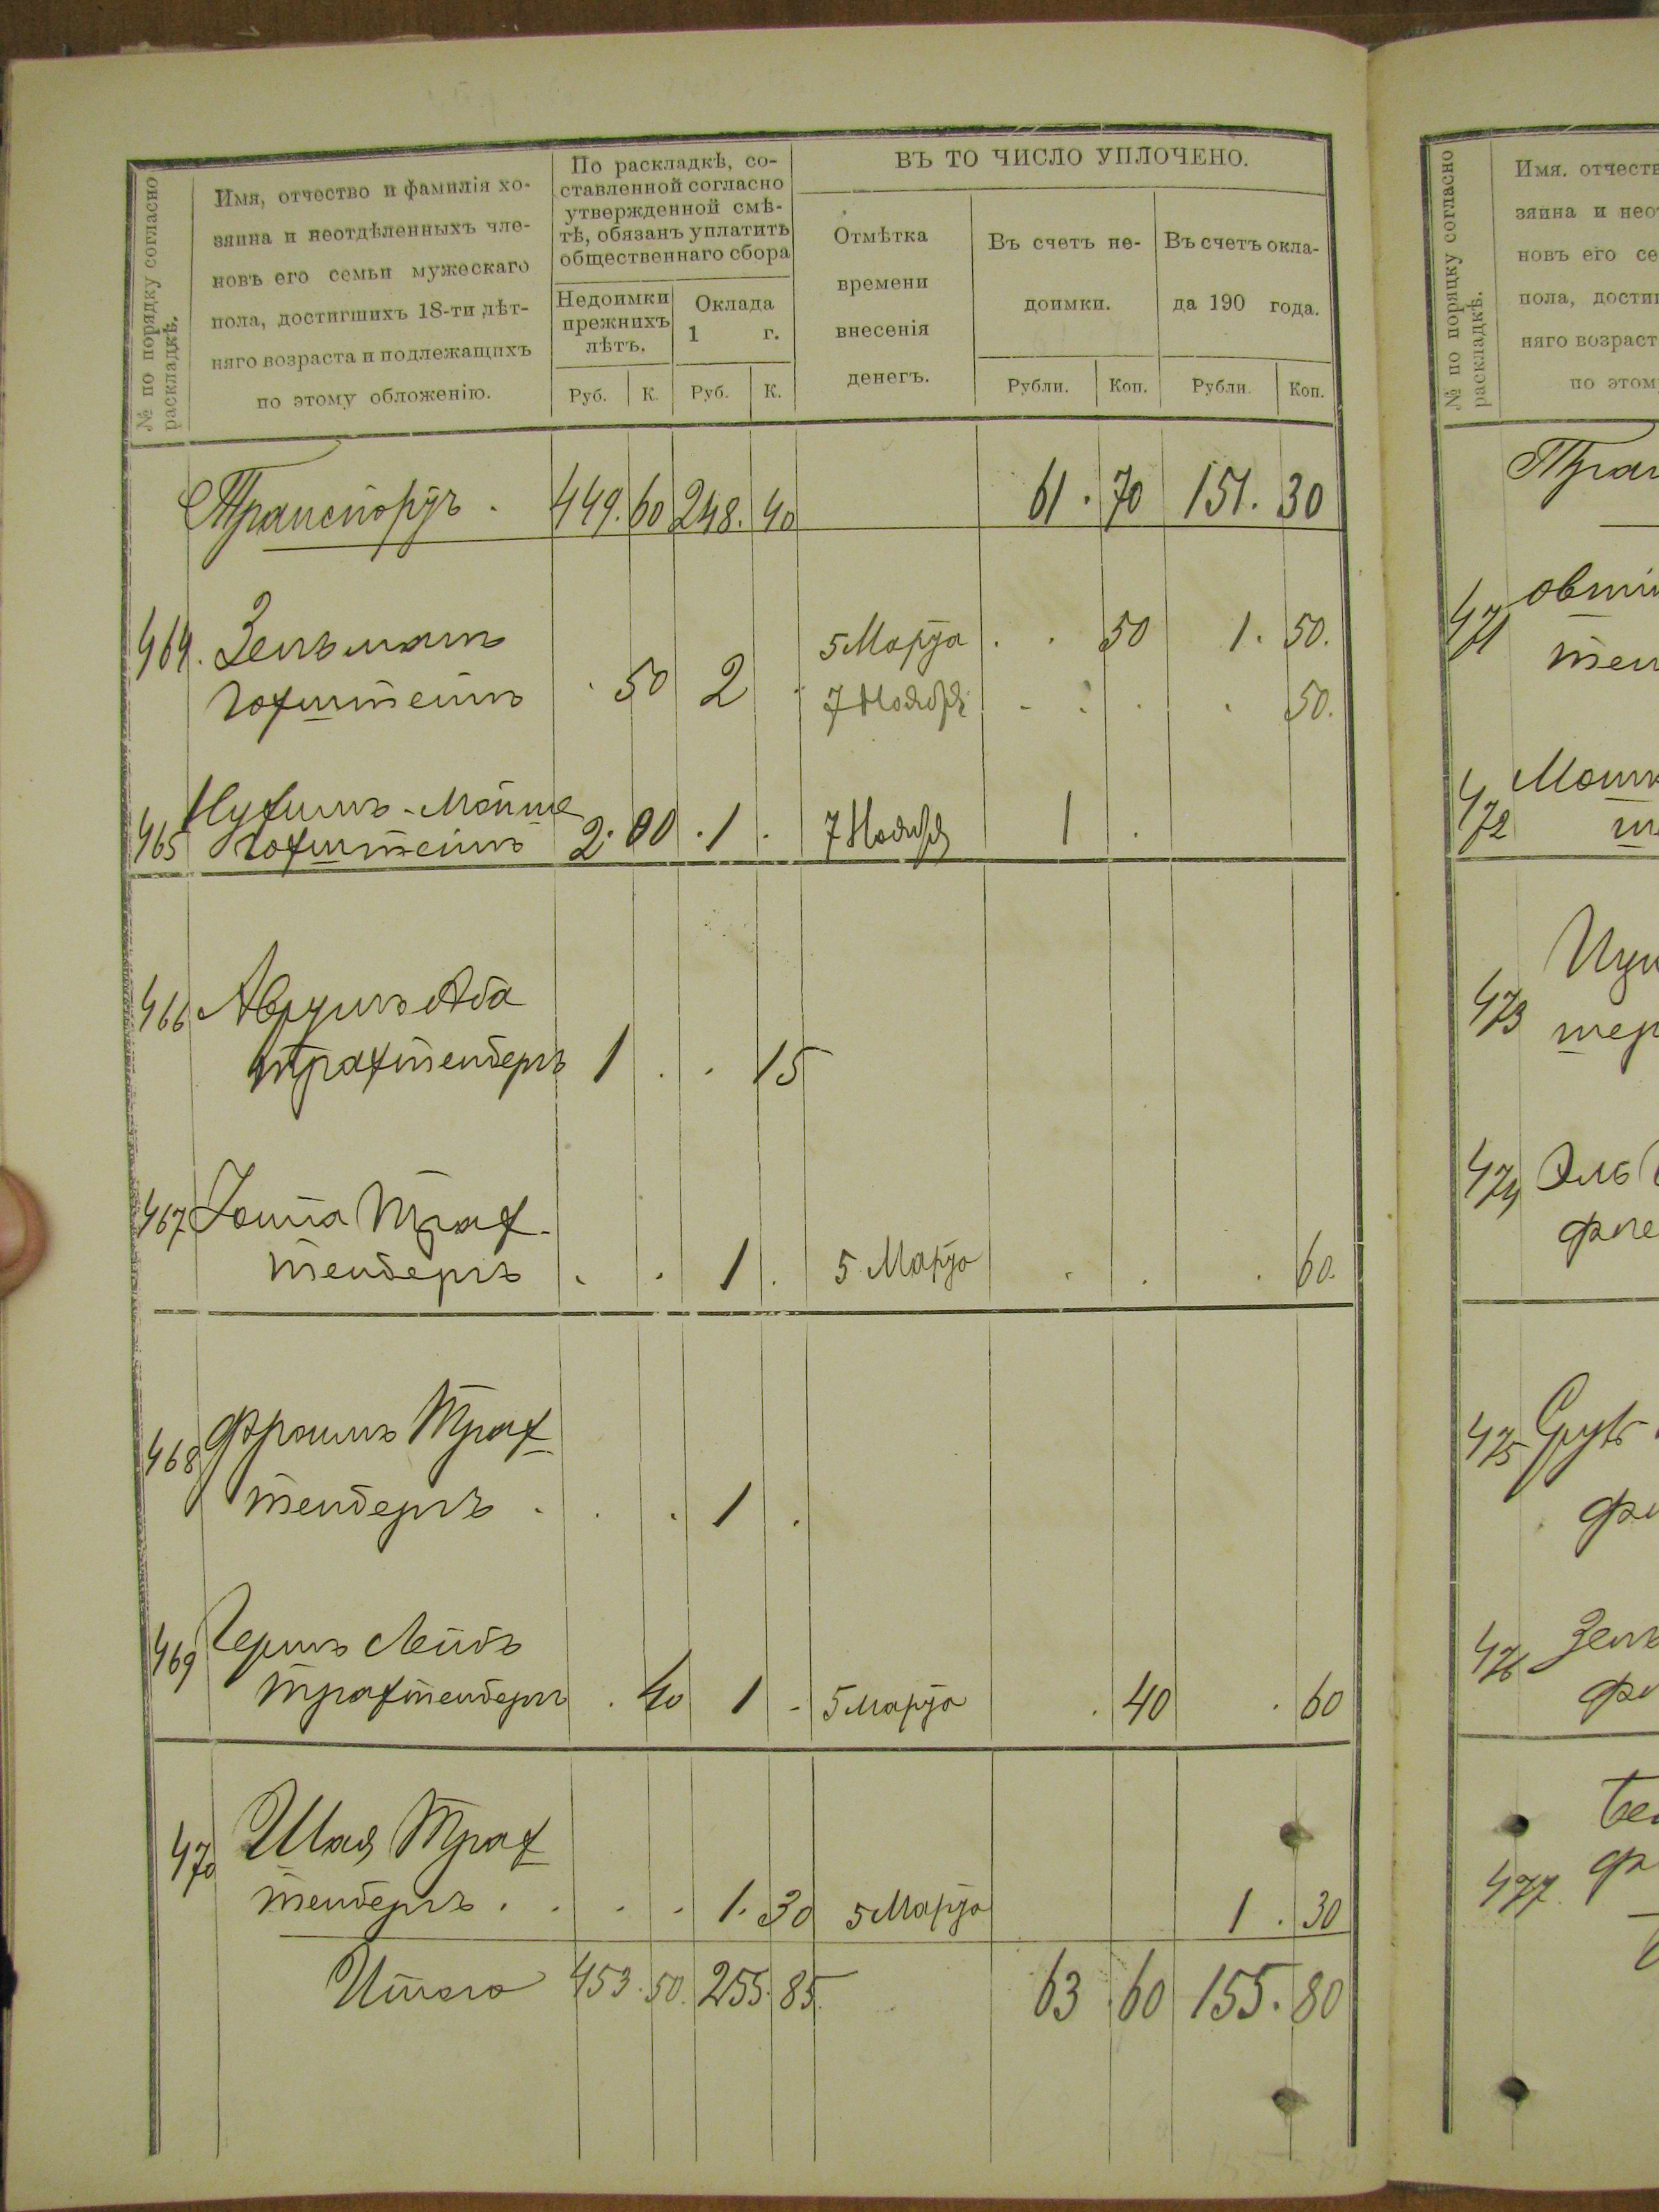 № по порядку согласно раскладкѣ.
Имя, отчество и фамилія хо-
зяина и неотдѣленныхъ чле-
новъ его семьи мужескаго
пола, достигшихъ 18-ти лѣт-
няго возраста и подлежащихъ
по этому обложенію.
По раскладкѣ, со-
ставленной согласно
утвержденной смѣ-
тѣ, обязанъ уплатить
общественнаго сбора
Недоимки
прежнихъ
лѣтъ.
Оклада
1 г.
Руб. К. Руб. К.
ВЪ ТО ЧИСЛО УПЛОЧЕНО.
Отмѣтка
времени
внесенія
денегъ.
Въ счетъ не-
доимки.
Въ счетъ окла-
да 190 года.
Рубли. Коп. Рубли. Коп.
Транспортъ . 449. 60 248. 40 61. 70 151. 30
464. Зельманъ 5 Марта . . 50 1. 50.
Гохштейнъ . 50 2 7 Ноября . . . . 50.
465 Нухимъ-Мойше
Гохштейнъ 2. 00 . 1 . 7 Ноября 1 .
466 Аврумъ Аба
Трахтенберъ 1 . . 15
467 Трах-
тенберъ . . 1 . 5 Марта . . . 60.
468 Фроимъ Трах
тенберъ . . . 1 .
469 Гершъ Лейбъ
Трахтенберъ . 40 1 - 5 Марта . 40 . 60
470 Шая Трах
тенберъ . . . . 1. 30 5 Марта 1 . 30
Итого 453. 50. 255. 85. 63. 60 155. 80
№ по порядку согласно раскладкѣ.
Имя. отчеств
зяина и нео
новъ его се
пола, дости
няго возраст
по этом
Тран
471
тен
472 Мошк
473
шер
474
475
фи
476 Зель
фи
477